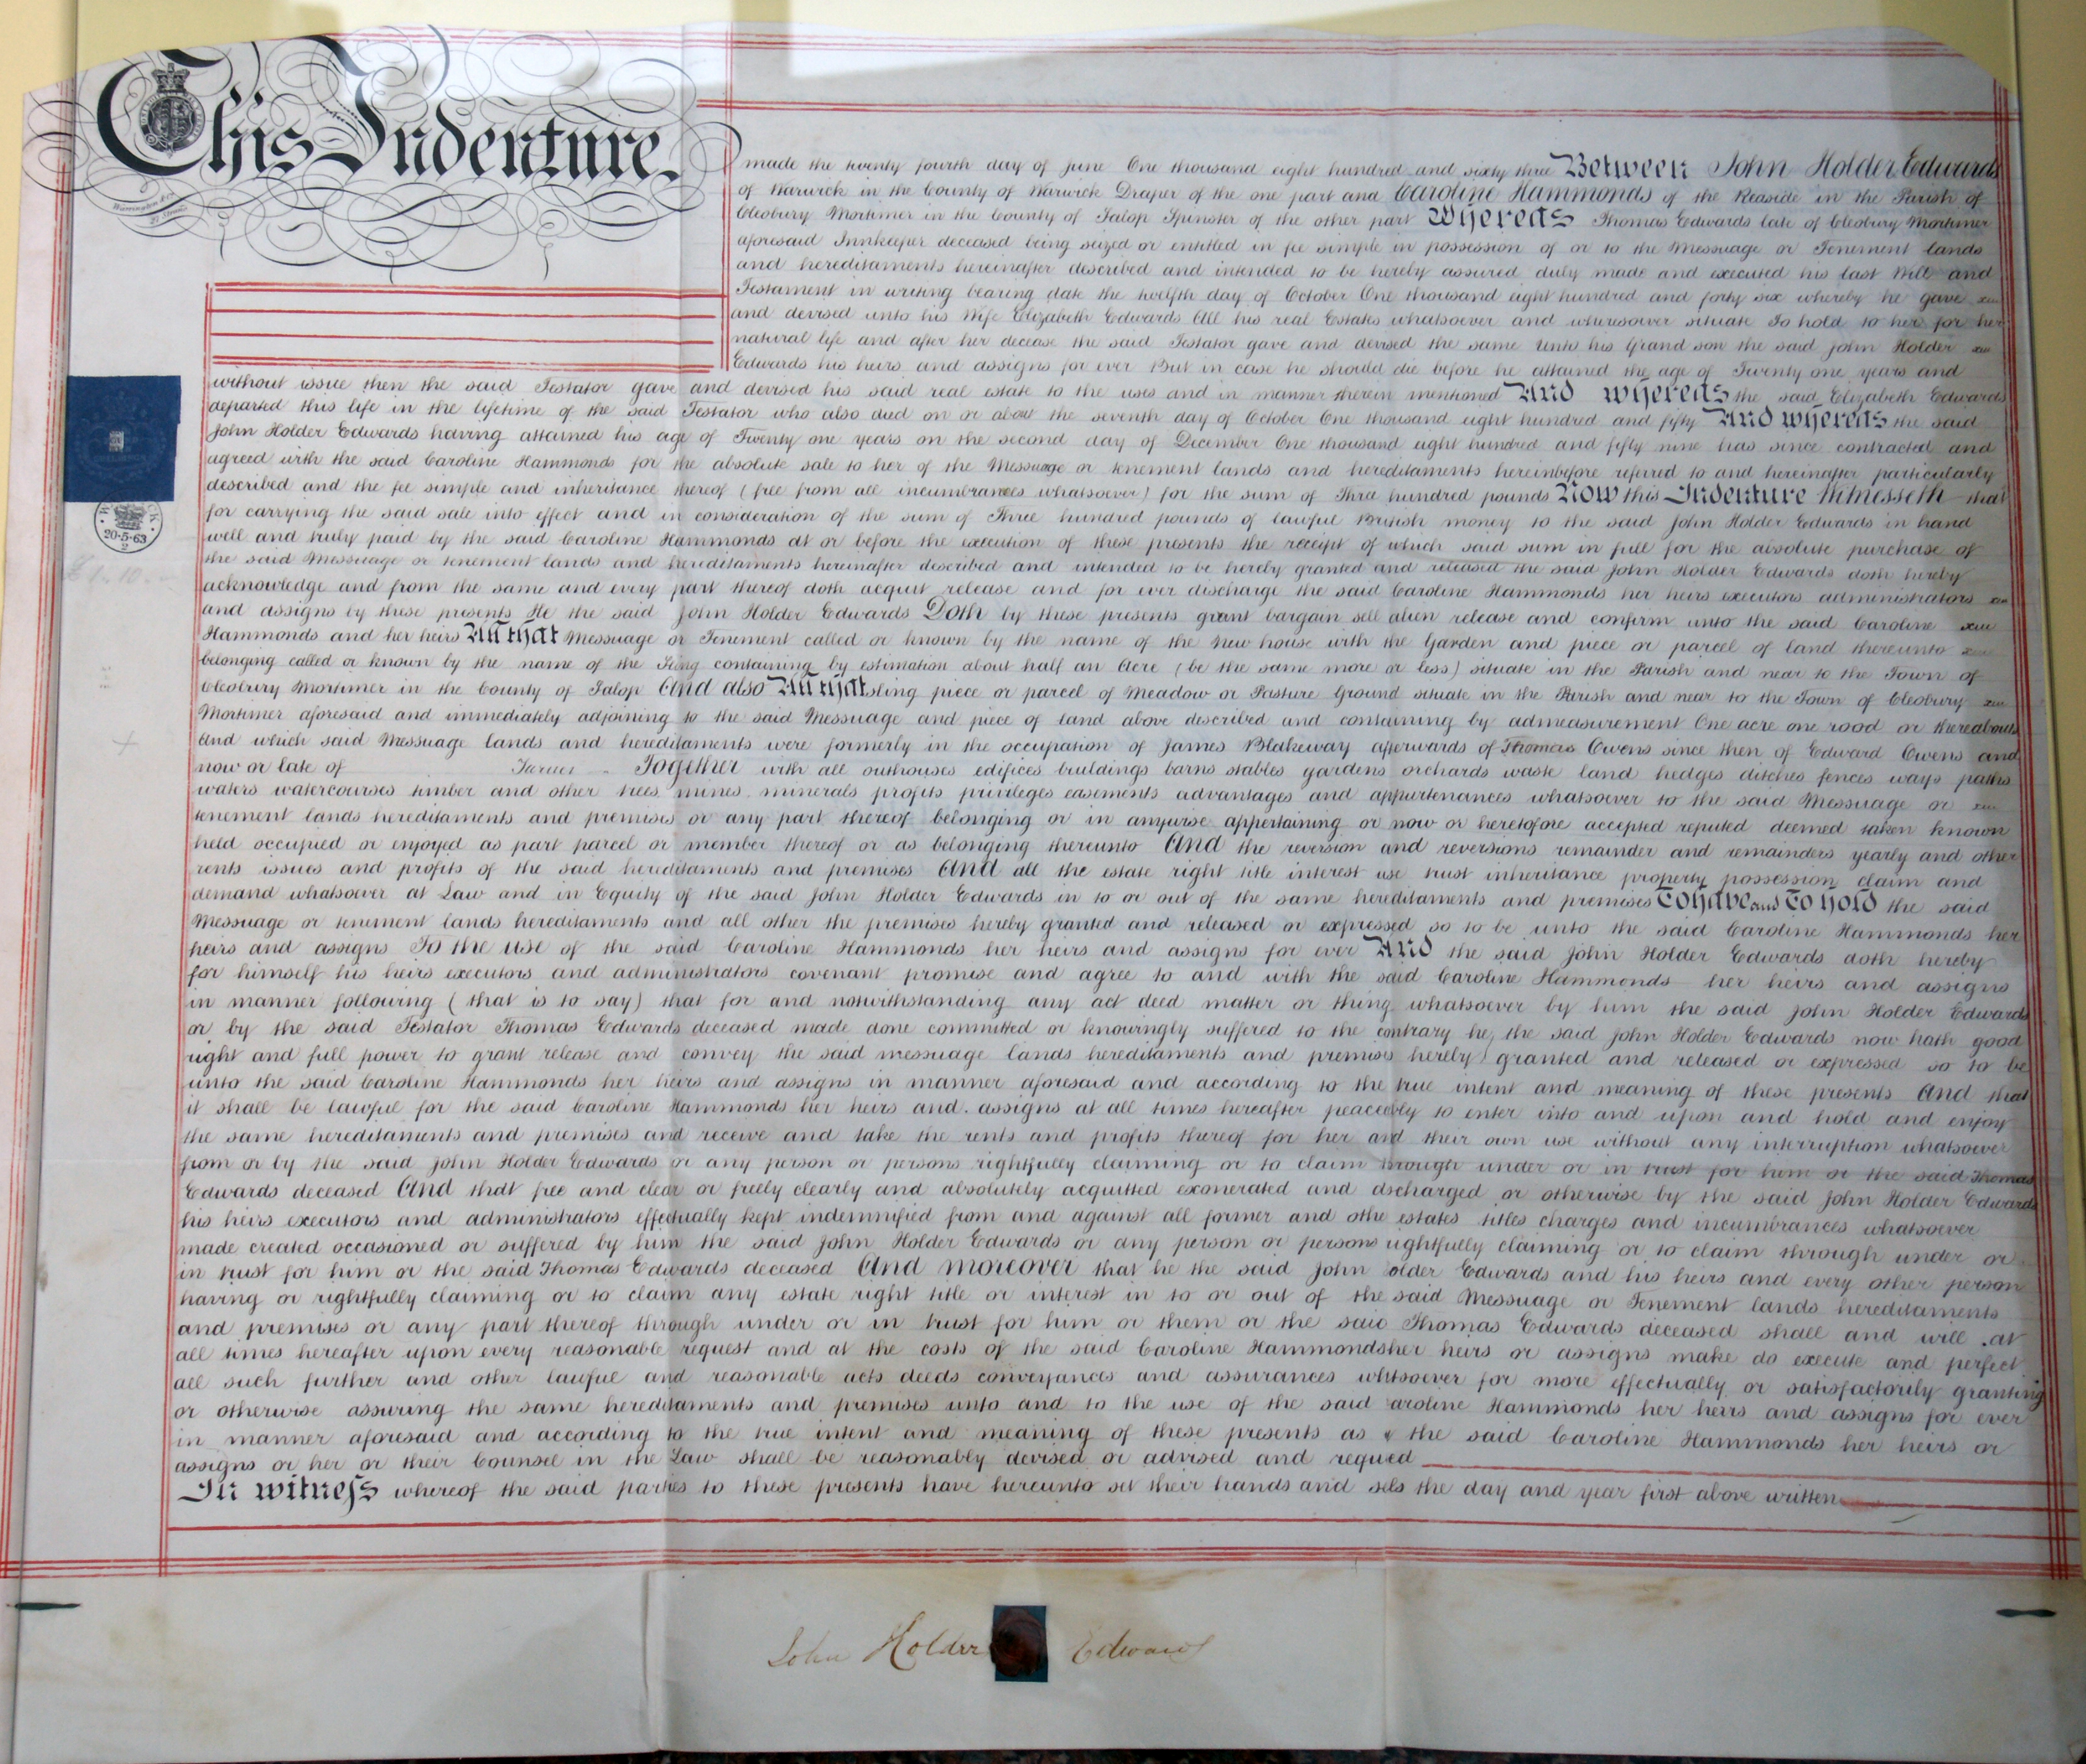 This Indenture
made the twenty fourth day of June One thousand eight hundred and sixty three Between John Holder Edwards
of Warwick in the County of Warwick Draper of the one part and Caroline Hammonds of the Reaside in the Parish of
Cleobury Mortimer in the County of Salop Spinster of the other part Whereas Thomas Edwards late of Cleobury Mortimer
aforesaid Innkeeper deceased being seized or entitled in fee simple in possession of or to the Messuage or Tenement lands
and hereditaments hereinafter described and intended to be hereby assured duly made and executed his last Will and
Testament in writing bearing date the twelfth day of October One thousand eight hundred and forty six whereby he gave
and devised unto his Wife Elizabeth Edwards All his real Estates whatsoever and wheresoever situate To hold to her for her
natural life and after her decease the said Testator gave and devised the same Unto his Grand son the said John Holder
Edwards his heirs and assigns for ever But in case he should die before he attained the age of Twenty one years and
without issue then the said Testator gave and devised his said real estate to the uses and in manner therein mentioned And whereas the said Elizabeth Edwards
departed this life in the lifetime of the said Testator who also died on or about the seventh day of October One thousand eight hundred and fifty And whereas the said
John Holder Edwards having attained his age of Twenty one years on the second day of December One thousand eight hundred and fifty nine has since contracted and
agreed with the said Caroline Hammonds for the absolute sale to her of the Messuage or tenement lands and hereditaments hereinbefore referred to and hereinafter particularly
described and the fee simple and inheritance thereof (free from all incumbrances whatsoever) for the sum of Three hundred pounds Now this Indenture Witnesseth that
for carrying the said sale into effect and in consideration of the sum of Three hundred pounds of lawful British money to the said John Holder Edwards in hand
well and truly paid by the said Caroline Hammonds at or before the execution of these presents the receipt of which said sum in full for the absolute purchase of
the said Messuage or tenement lands and hereditaments hereinafter described and intended to be hereby granted and released the said John Holder Edwards doth hereby
acknowledge and from the same and every part thereof doth acquit release and for ever discharge the said Caroline Hammonds her heirs executors administrators
and assigns by these presents He the said John Holder Edwards Doth by these presents grant bargain sell alien release and confirm unto the said Caroline
Hammonds and her heirs All that Messuage or Tenement called or known by the name of the New house with the Garden and piece or parcel of land thereunto
belonging called or known by the name of the containing by estimation about half an Acre (be the same more or less) situate in the Parish and near to the Town of
Cleobury Mortimer in the County of Salop And also All that sling piece or parcel of Meadow or Pasture Ground situate in the Parish and near to the Town of Cleobury
Mortimer aforesaid and immediately adjoining to the said Messuage and piece of land above described and containing by admeasurement One acre one rood or thereabouts
And which said Messuage lands and hereditaments were formerly in the occupation of James Blakeway afterwards of Thomas Owens since then of Edward Owens and
now or late of Turner Together with all outhouses edifices buildings barns stables gardens orchards waste land hedges ditches fences ways paths
waters watercourses timber and other trees mines minerals profits privileges easements advantages and appurtenances whatsoever to the said Messuage or
tenement lands hereditaments and premises or any part thereof belonging or in anywise appertaining or now or heretofore accepted reputed deemed taken known
held occupied or enjoyed as part parcel or member thereof or as belonging thereunto And the reversion and reversions remainder and remainders yearly and other
rents issues and profits of the said hereditaments and premises And all the estate right title interest use trust inheritance property possession claim and
demand whatsoever at Law and in Equity of the said John Holder Edwards in to or out of the same hereditaments and premises To have and To hold the said
Messuage or tenement lands hereditaments and all other the premises hereby granted and released or expressed so to be unto the said Caroline Hammonds her
heirs and assigns To the use of the said Caroline Hammonds her heirs and assigns for ever And the said John Holder Edwards doth hereby
for himself his heirs executors and administrators covenant promise and agree to and with the said Caroline Hammonds her heirs and assigns
in manner following (that is to say) that for and notwithstanding any act deed matter or thing whatsoever by him the said John Holder Edwards
or by the said Testator Thomas Edwards deceased made done committed or knowingly suffered to the contrary he the said John Holder Edwards now hath good
right and full power to grant release and convey the said messuage lands hereditaments and premises hereby granted and released or expressed so to be
unto the said Caroline Hammonds her heirs and assigns in manner aforesaid and according to the true intent and meaning of these presents And that
it shall be lawful for the said Caroline Hammonds her heirs and assigns at all times hereafter peaceably to enter into and upon and hold and enjoy
the same hereditaments and premises and receive and take the rents and profits thereof for her and their own use without any interruption whatsoever
from or by the said John Holder Edwards or any person or persons rightfully claiming or to claim through under or in trust for him or the said Thomas
Edwards deceased And that free and clear or freely clearly and absolutely acquitted exonerated and dscharged or otherwise by the said John Holder Edwards
his heirs executors and administrators effectually kept indemnified from and against all former and othe estates titles charges and incumbrances whatsoever
made created occasioned or suffered by him the said John Holder Edwards or any person or persons rightfully claiming or to claim through under or
in trust for him or the said Thomas Edwards deceased And moreover that he the said John older Edwards and his heirs and every other person
having or rightfully claiming or to claim any estate right title or interest in to or out of the said Messuage or Tenement lands hereditaments
and premises or any part thereof through under or in trust for him or them or the said Thomas Edwards deceased shall and will at
all times hereafter upon every reasonable request and at the costs of the said Caroline Hammonds her heirs or assigns make do execute and perfect
all such further and other lawful and reasonable acts deeds conveyances and assurances whtsoever for more effectually or satisfactorily granting
or otherwise assuring the same hereditaments and premises unto and to the use of the said aroline Hammonds her heirs and assigns for ever
in manner aforesaid and according to the true intent and meaning of these presents as the said Caroline Hammonds her heirs or
assigns or her or their Counsel in the Law shall be reasonably devised or advised and requed
In witness whereof the said parties to these presents have hereunto set their hands and sels the day and year first above written
20-5-63
John Holder Edwards